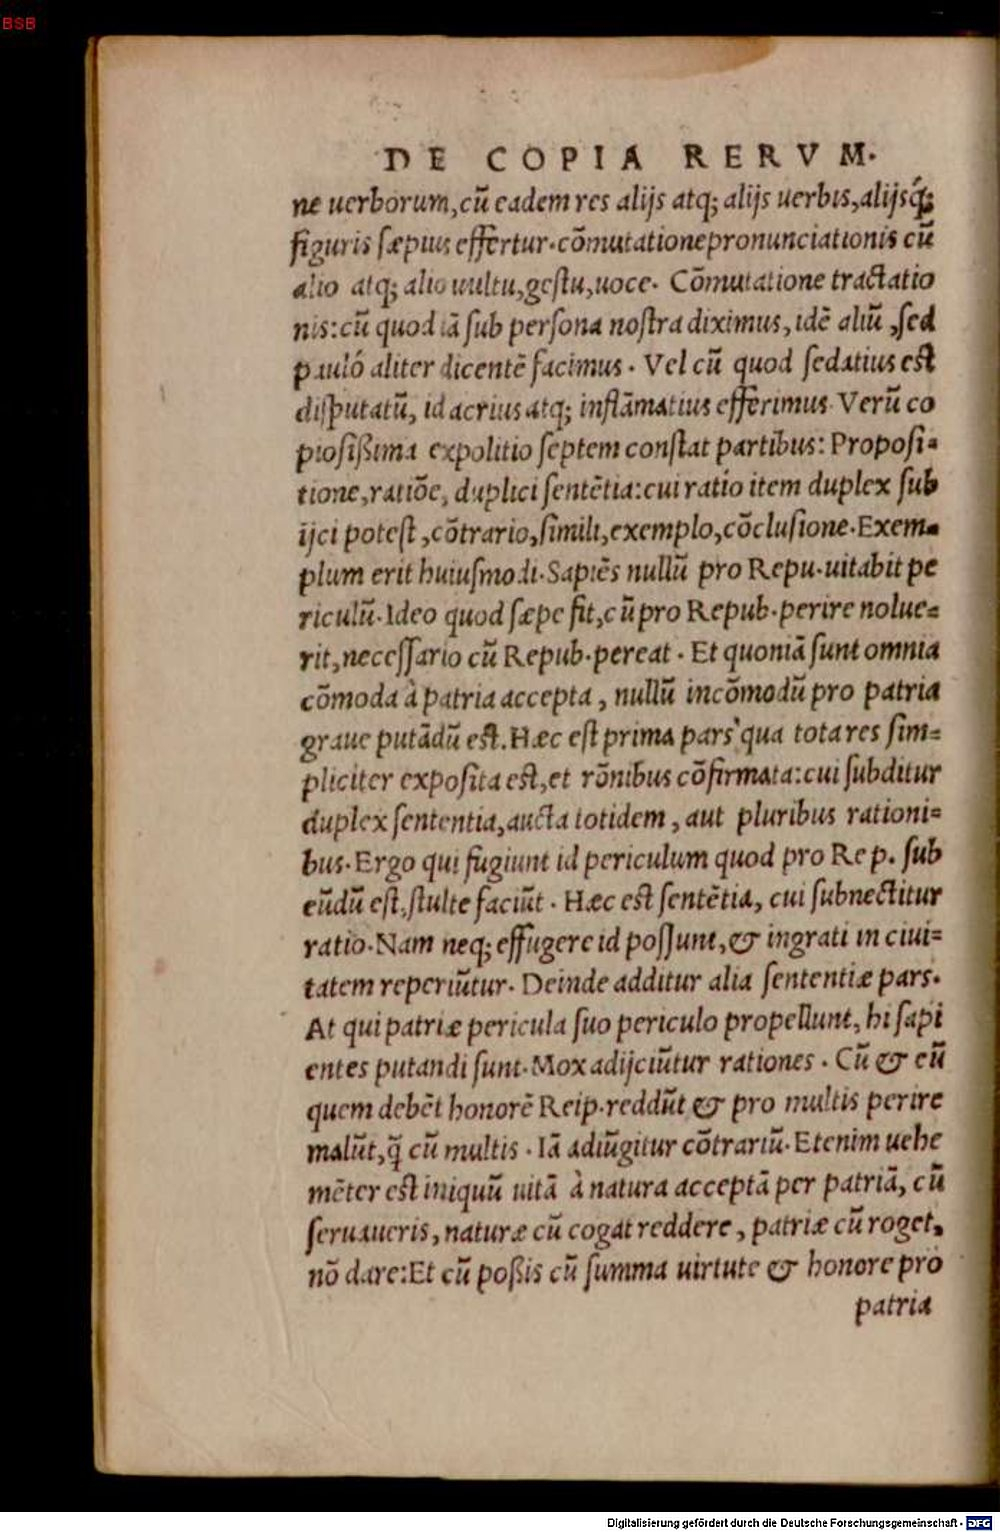 BSB
DE COPIA RERVM.
ne uerborum, cũ eadem res alijs atq; alijs uerbis, alijsq́;
figuris sæpius effertur. cõmutatione pronunciationis cũ
alio atq; alio uultu, gestu, uoce. Cõmutatione tractatio
nis: cũ quod iã sub persona nostra diximus, idẽ aliũ, sed
pauló aliter dicentẽ facimus. Vel cũ quod sedatius est
disputatũ, id acrius atq; inflãmatius efferimus. Verũ co
piosißima expolitio septem constat partibus: Proposi=
tione, ratiõe, duplici sentẽtia: cui ratio item duplex sub
ijci potest, cõtrario, simili, exemplo, cõclusione. Exem=
plum erit huiusmodi. Sapiẽs nullũ pro Repu. uitabit pe
riculũ. Ideo quod sæpe fit, cũ pro Repub. perire nolue=
rit, necessario cũ Repub. pereat. Et quoniã sunt omnia
cõmoda à patria accepta, nullũ incõmodũ pro patria
graue putãdũ est. Hæc est prima pars qua tota res sim=
pliciter exposita est, et rõnibus cõfirmata: cui subditur
duplex sententia, aucta totidem, aut pluribus rationi=
bus. Ergo qui fugiunt id periculum quod pro Rep. sub
eũdũ est, stulte faciũt. Hæc est sentẽtia, cui subnectitur
ratio. Nam neq; effugere id possunt, & ingrati in ciui=
tatem reperiũtur. Deinde additur alia sententiæ pars.
At qui patriæ pericula suo periculo propellunt, hi sapi
entes putandi sunt. Mox adijciũtur rationes. Cũ & eũ
quem debẽt honorẽ Reip. reddũt & pro multis perire
malũt, q̃ cũ multis. Iã adiũgitur cõtrariũ. Etenim uehe
mẽter est iniquũ uitã à natura acceptã per patriã, cũ
seruaueris, naturæ cũ cogat reddere, patriæ cũ roget,
nõ dare: Et cũ poßis cũ summa uirtute & honore pro
patria
Digitalisierung gefördert durch die Deutsche Forschungsgemeinschaft - DFG